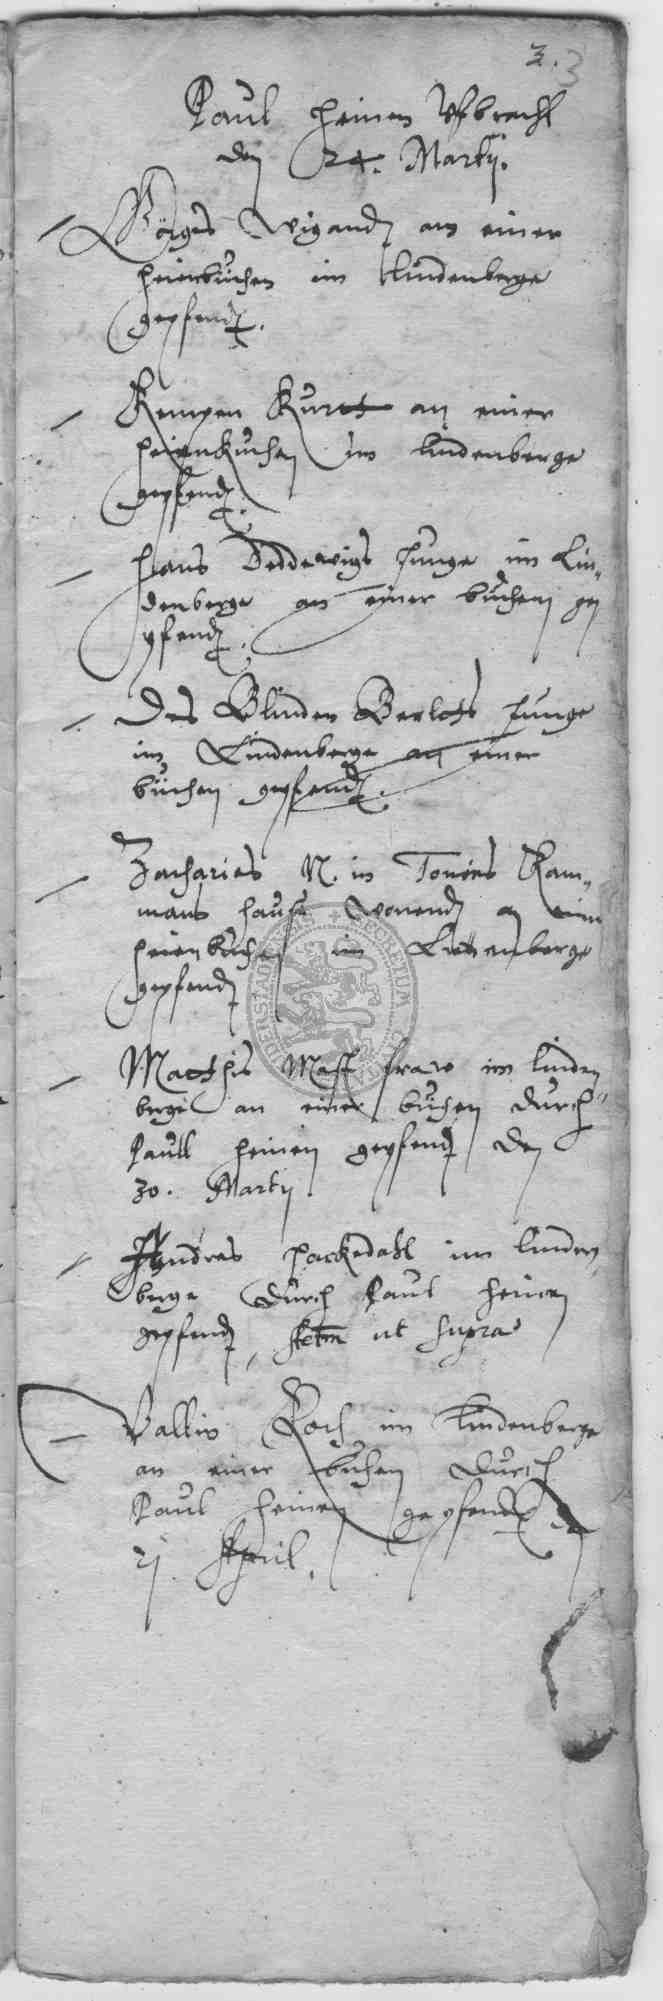 3. 3
Paul Heinen Vfbracht
den 24. Martij.
Görges Wigandt am einer
heienbuchen im lindenberge
gepfendt.
Kempen Kurtt an einer
heienbuchen im lindenberge
gepfendt.
Hans Deddewigs Junge im Lin-
denberge an einer buchen ge
pfendt.
Des Blinden Berlots Junge
im Lindenberge an einer
buchen gepfendt.
Zacharies N. in Tonies Kam-
mans hause wonendt an einer
heienbuchen im Lindenberge
gepfendt
Matthis fraw im linden
berge an einer buchen durch
Paull Heinen gepfendt den
30. Martij
Andres Hackedahl im linden
berge durch Paul Heinen
gepfendt, ut supra
Vallin Koch im Lindenberge
an einer buchen durch
Paul Heinen gepfendt
April.
SECRETUM